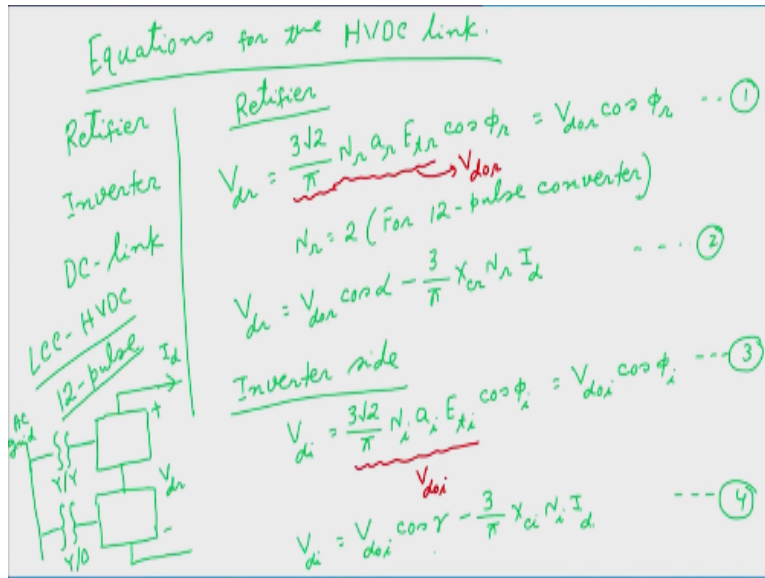 Equations for the HVDC link.
Retifier
Inverter
DC-link
LCC-HVDC
12-pulse
Retifier
V_dr = 3√2/π N_r a_r E_tr cos φ_r = V_dor cos φ_r -- ①
V_dor
N_r = 2 (For 12-pulse converter)
V_dr = V_dor cos α - 3/π X_cr N_r I_d ---- ②
Inverter side
V_di = 3√2/π N_i a_i E_ti cos φ_i = V_doi cos φ_i --- ③
V_doi
V_di = V_doi cos γ - 3/π X_ci N_i I_d ---- ④
AC
grid
I_d
+
Y/Y
V_dr
-
Y/D